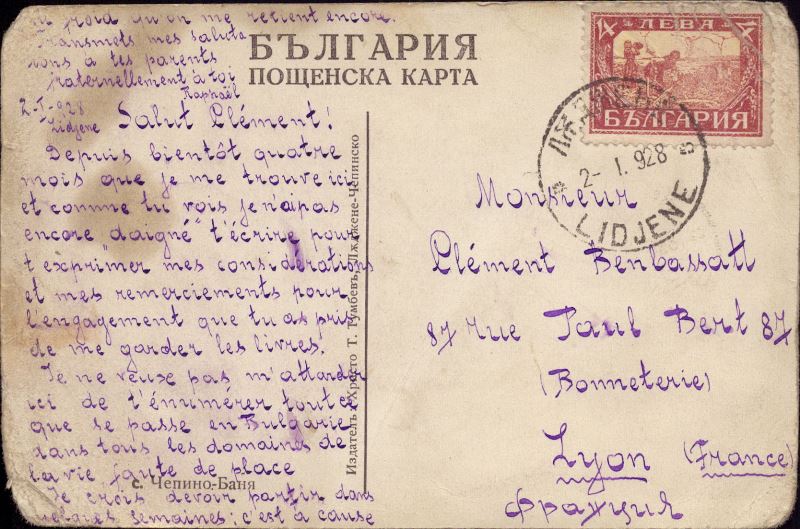 БЪЛГАРИЯ
ПОЩЕНСКА КАРТА
4 ЛЕВА 4
БЪЛГАРИЯ
2- I. 928
LIDJENE
2-I-928
Lidjene
Salut Clément!
Depuis bientôt quatre
mois que je me trouve ici
et comme tu vois je n'ai pas
encore "daigné" t'écrire pour
t'exprimer mes considérations
et mes remerciements pour
l'engagement que tu as pris
de me garder les livres.
Je ne veuse pas m'attarder
ici de t'énumérer tout ce
que se passe en Bulgarie
dans tous les domaines de
la vie faute de place
Je crois devoir partir dans
quelques semaines; c'est à cause
du froid qu'on me retient encore.
Transmets mes saluta
tions à tes parents
fraternellement à toi
Raphaël
с. Чепино-Баня
Издатель: Христо Т. Гумбевъ, Лъжене-Чепинско
Monsieur
Clément Benbassatt
87 rue Paul Bert 87
(Bonneterie)
Lyon (France)
Франция